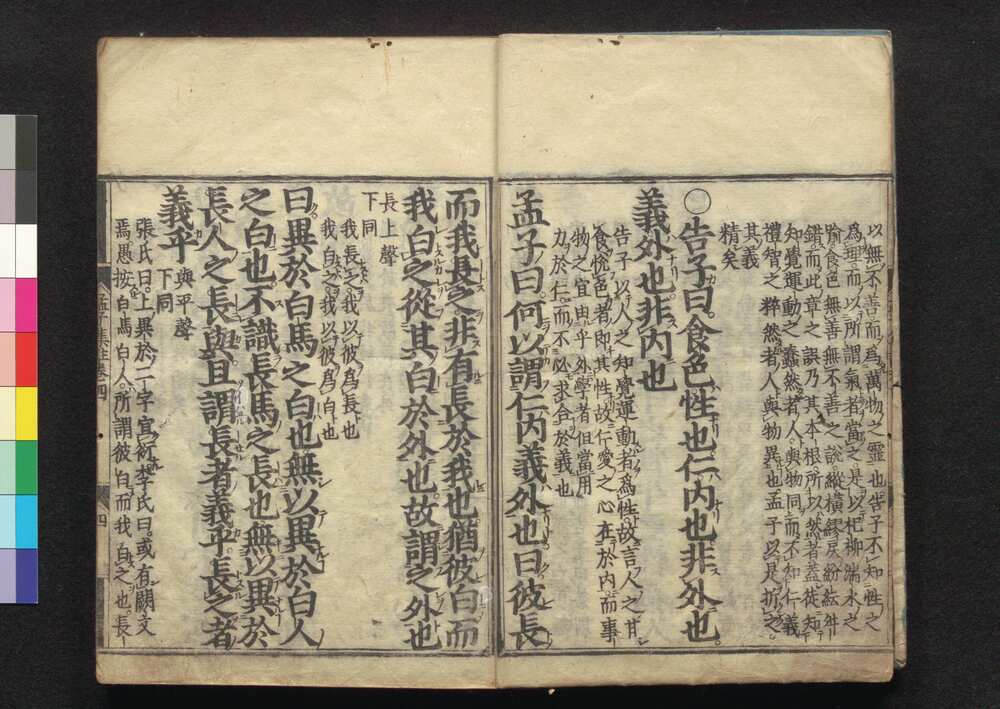 以無不善而爲萬物之靈也告子不知性之
爲理而以所謂氣者當之是以杞柳湍水之
喻食色無善無不善之說縱橫繆戾紛紜舛
錯而此章之誤乃其本根所以然者蓋徒知
知覺運動之蠢然者人與物同而不知仁義
禮智之粹然者人與物異也孟子以是折之。
其義
精矣
〇告子曰食色性也仁內也非外也。
義外也非內也
告子以人之知覺運動者爲性故言人之甘
食悅色者即其性故仁愛之心在於內而事
物之宜由乎外學者但當用
力於仁而不必求合於義也
孟子曰何以謂仁內義外也曰彼長
而我長之非有長於我也猶彼白而
我白之從其白於外也故謂之外也
長上聲
下同
我長之我以彼爲長也
我白之我以彼爲白也
曰異於白馬之白也無以異於白人
之白也不識長馬之長也無以異於
長人之長與且謂長者義乎長之者
義乎
與平聲
下同
張氏曰上異於二字宜衍李氏曰或有闕文
焉愚按白馬白人所謂彼白而我白之也長
孟子集註卷四
四